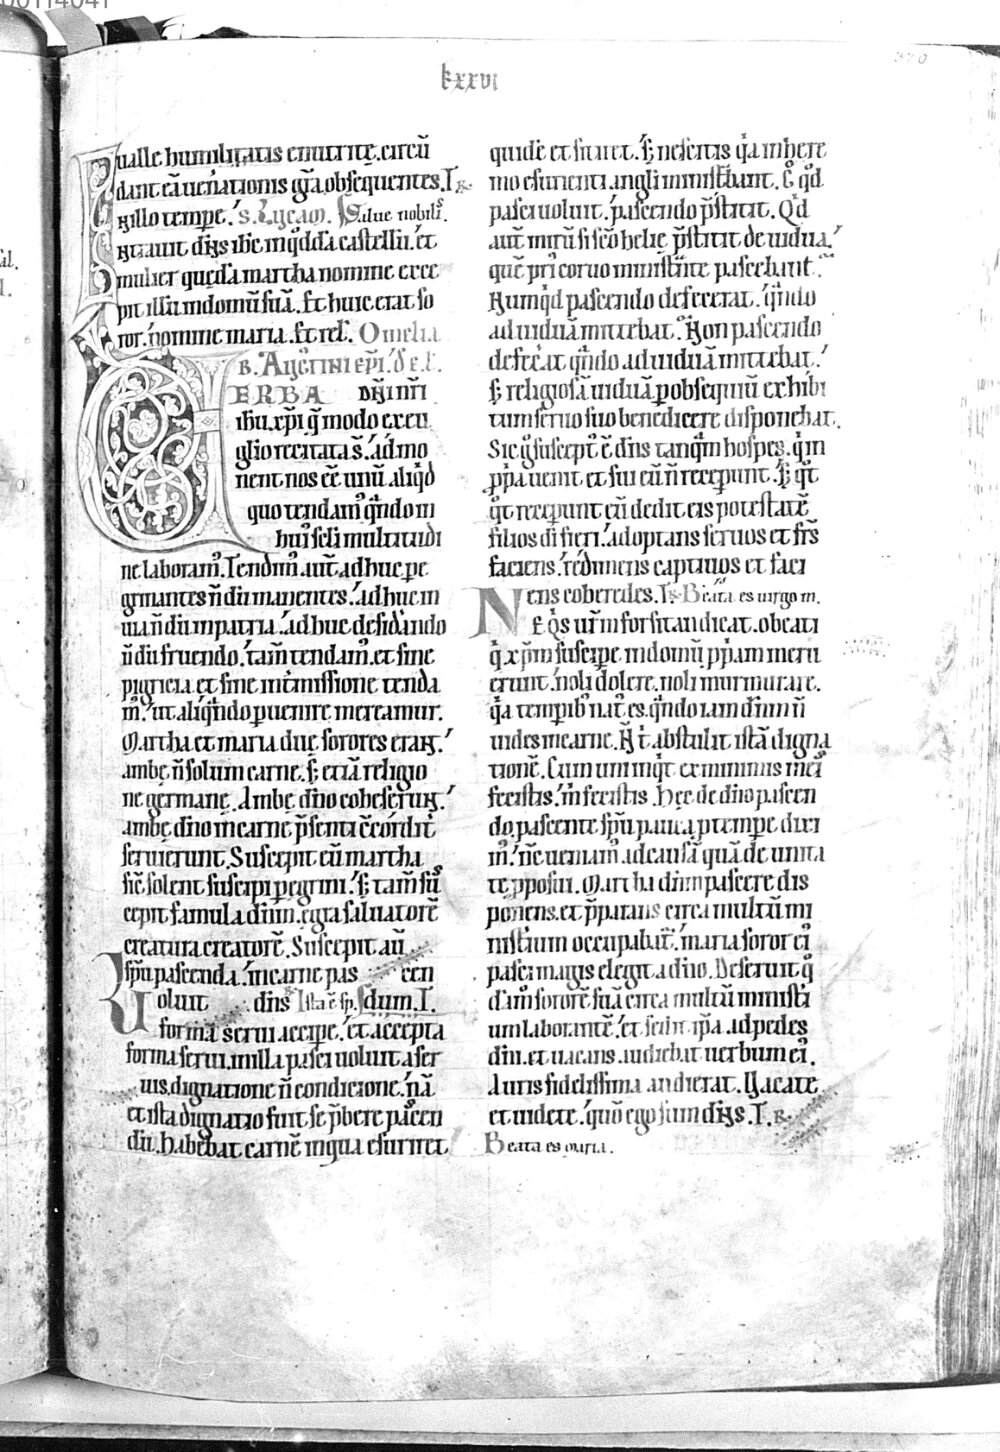 lxxvi
370
ualle humilitatis enutritę. circū
dant eā uenationis gr̄a obsequentes. I R̷.
N illo tempr̄e. s. Lucam. Salue nobilꝰ.
Intrauit dn̄s ihc̄ in qͦddā castellū. et
mulier quędā martha nomine exce
pit illū in domū suā. Et huic erat so
ror nomine maria. Et rel̄. Omelia
B. AuG̅TINI ep̄i. de e. l.
VERBA DN̄I NR̄I
ihu xp̄i q̄ modo ex eu
glio recitata s̄. admo
nent nos eē unū aliqͥd
quo tendamꝰ qn̄do in
huiꝰ seculi multitudi
ne laboramꝰ. Tendimꝰ aut̄ adhuc pe
grinantes n̄dū manentes. adhuc in
uia n̄dū in patria. adhuc desid̄ando
n̄dū fruendo. tam̄ tendamꝰ. et sine
pigricia et sine int̄missione tenda
mꝰ. ut aliqn̄do puenire mereamur.
Martha et maria due sorores erant.
ambę n̄ solum carne. sꝫ etiā religio
ne germanę. Ambę dn̄o coheserunt.
ambę dn̄o in carne p̄senti c̄cordit̄
seruierunt. Suscepit eū martha
sic̄ solent suscipi peregrini. sꝫ tam̄ sus
cepit famula dn̄m. egra saluatorē
creatura creatorē. Suscepit aū
sp̄u pascenda. in carne pas cen
dum. I. Ista ē sp. dn̄s Uoluit
forma serui accipe. et accepta
forma serui. in illa pasci uoluit a ser
uis. dignatione n̄ condicione. nā
et ista dignatio fuit se p̄bere pascen
dū. habebat carnē in qua esuriret
quidē et sitiret. sꝫ nescitis qͥa in here
mo esurienti angli ministrabant. Ē qͦd
pasci uoluit. pascendo p̄stitit. Qͥd
aut̄ mirū si sc̄o helie p̄stitit de uidua.
quē priꝰ coruo ministrante pascebant.
Numqͥd pascendo defecerat. qn̄do
ad uiduā mittebat. Non pascendo
defecerat qn̄do ad uiduā mittebat.
sꝫ religiosā uiduā p obsequiū exhibi
tum seruo suo benedicere disponebat.
Sic gͦ susceptꝰ ē dn̄s tanqͣm hospes. qͥ in
ppͥa uenit et sui eū n̄ receperunt. sꝫ qͦt
qͦt receperunt eū dedit eis potestatē
filios dī fieri. adoptans seruos et fr̄s
faciens. redimens captiuos et faci
ens coheredes. I R̷. Beata es uirgo m.
Ne qͥs ur̄m forsitan dicat. o beati
qͥ xp̄m suscipe in domū pp̄am meru
erunt. noli dolere. noli murmurare.
qͥa temporibꝰ natꝰ es. qn̄do iam dn̄m n̄
uides in carne. N t̄ abstulit istā digna
tionē. Cum uni inqͥt ex minimis meis
fecistis. m̄ fecistis. Hec de dn̄o pascen
do. pascente sp̄u pauca p tempe dixi
mꝰ. nc̄ ueniamꝰ ad causā quā de unita
te pposui. Martha dn̄m pascere dis
ponens. et p̄parans circa multū mi
nistrium occupabat̄. maria soror eiꝰ
pasci magis elegit a dn̄o. Deseruit qͦ
dāmͦ sororē suā circa multū ministri
um laborantē. et sedit ip̄a ad pedes
dn̄i. et uacans audiebat uerbum eiꝰ.
Auris fidelissima audierat. Uacate
et uidete. quō ego sum dn̄s. I. R̷.
Beata es maria.